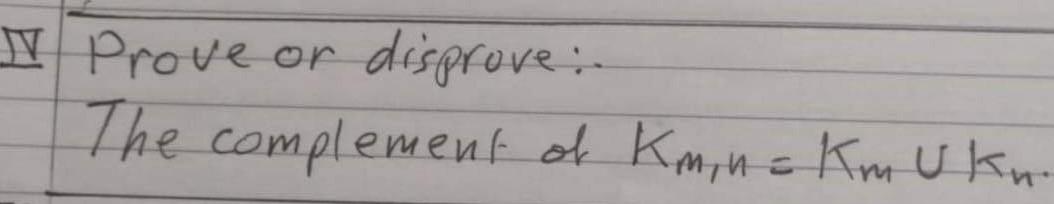 IV Prove or disprove:.
The complement of Km,n = Km ∪ Kn.